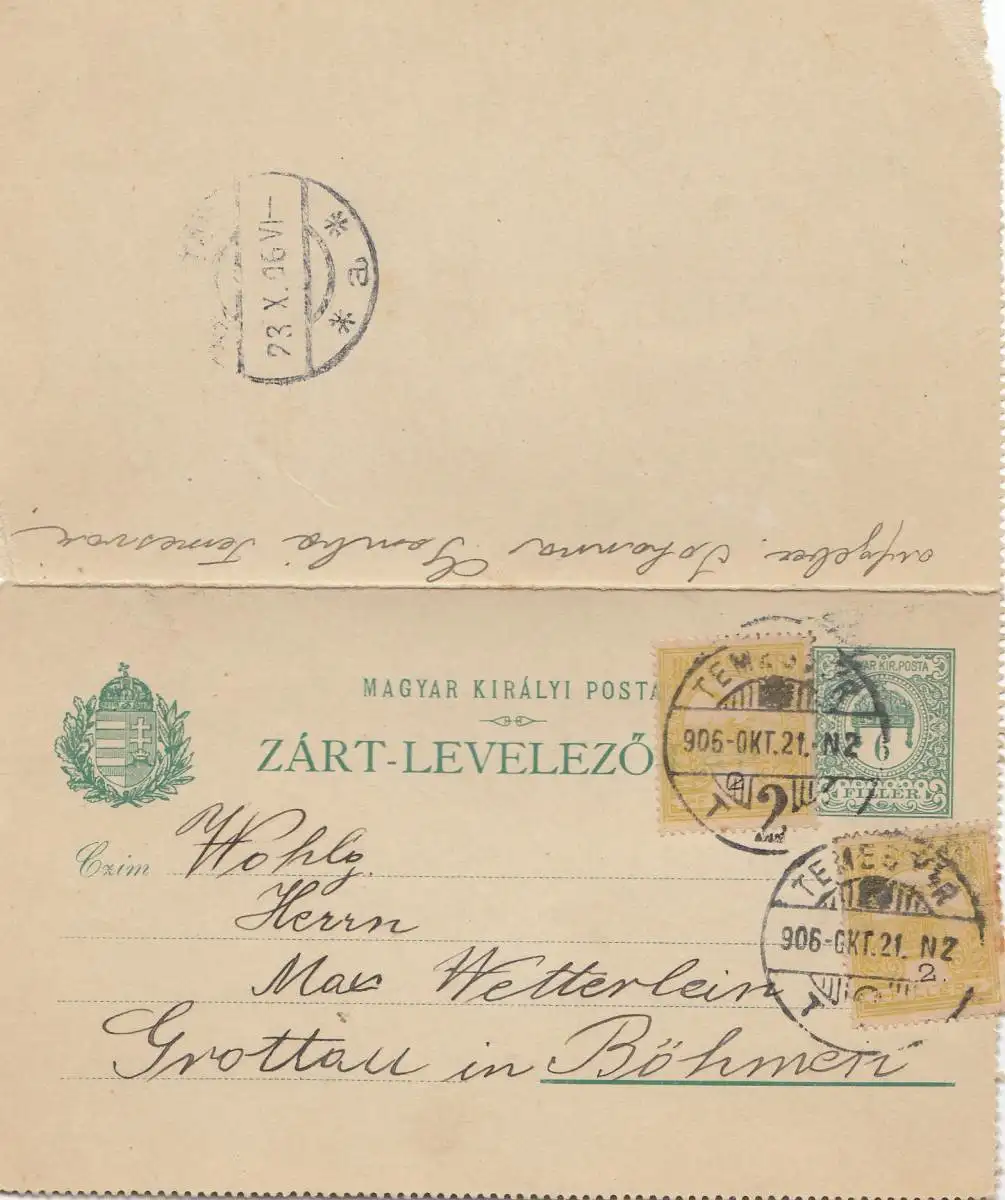 23.X.06 VI–
* a *
aufgeber. Johanna Temesvar
MAGYAR KIRÁLYI POSTA
ZÁRT-LEVELEZŐ
MAGYAR KIR. POSTA
6
FILLÉR
TEMESVÁR
906-OKT.21.-N2
2
TEMESVÁR
906-OKT.21. N2
2
Czím Wohlg.
Herrn
Max Wetterlein
Grottau in Böhmen